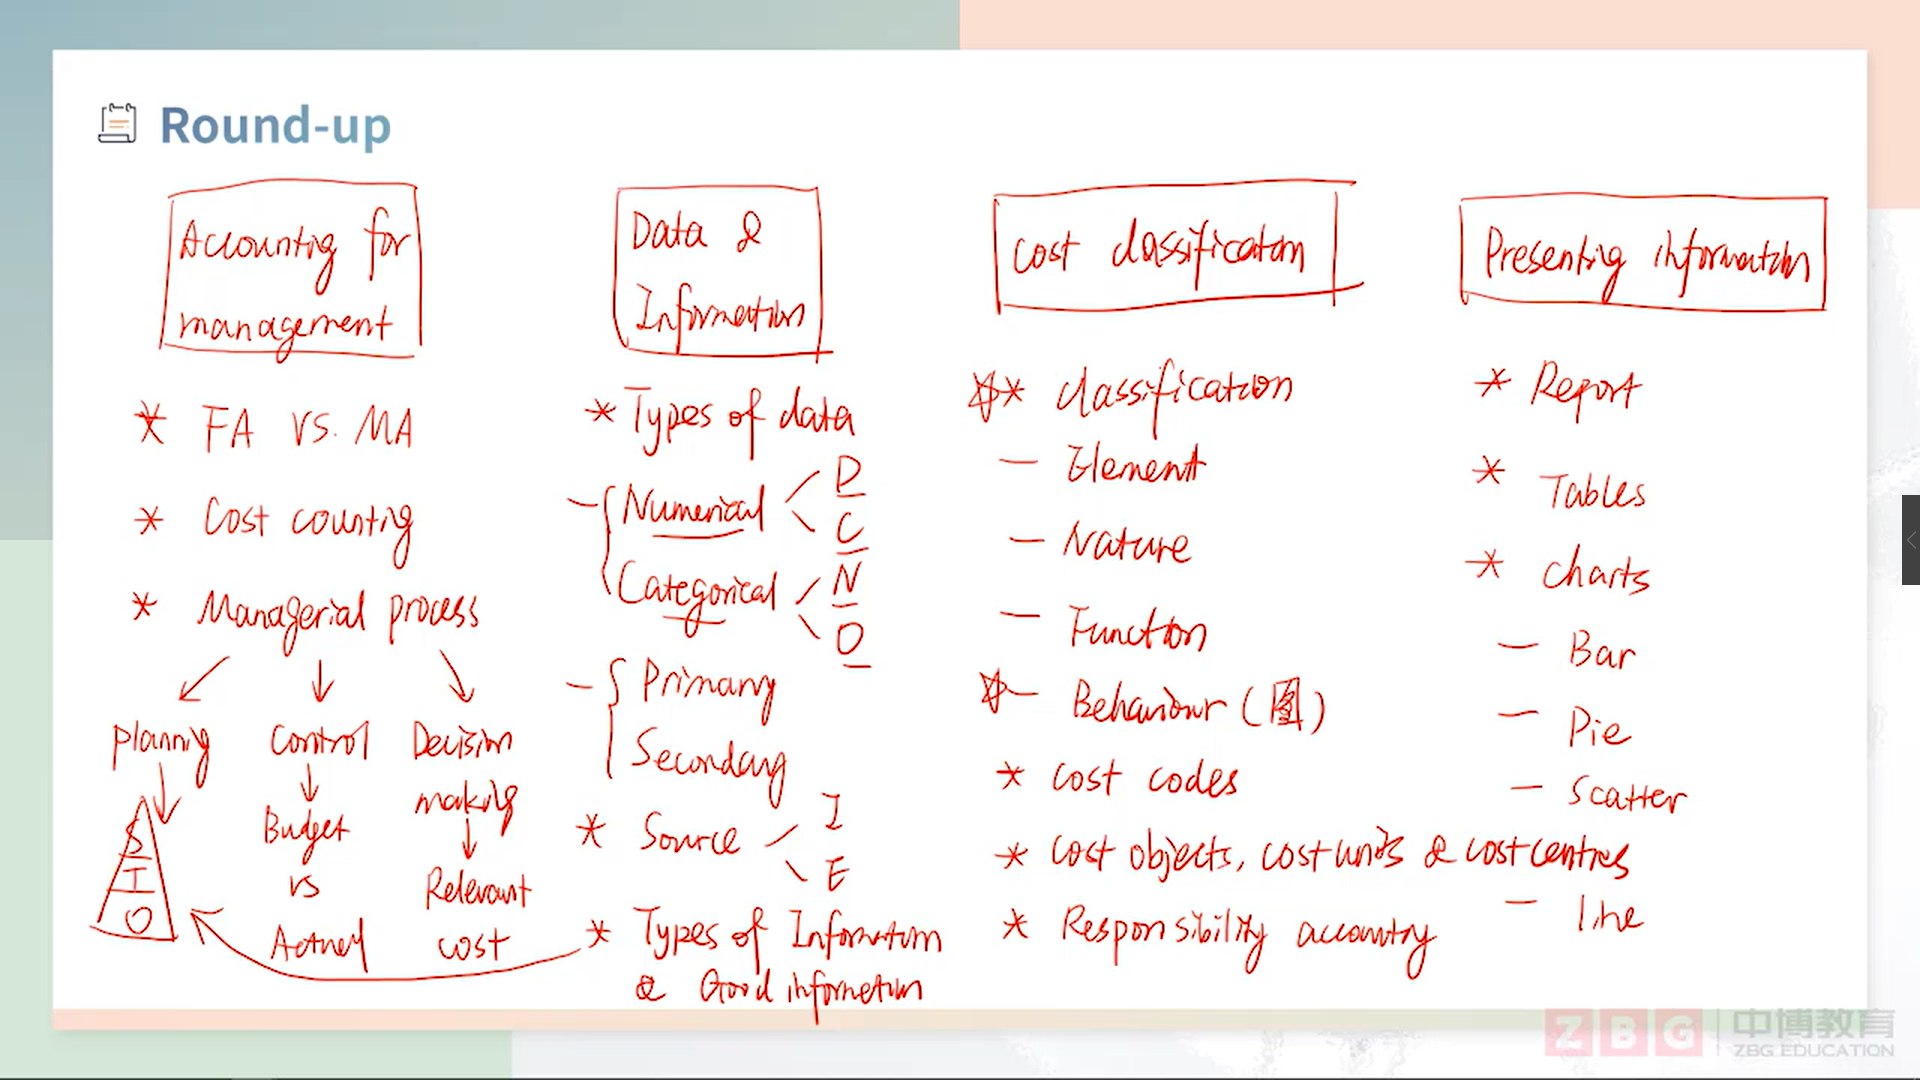 Round-up
Accounting for
management
* FA vs. MA
* Cost counting
* Managerial process
planning
Control
Decision
making
S
I
O
Budget
vs
Actual
Relevant
cost
Data &
Information
* Types of data
- Numerical
D
C
Categorical
N
O
- Primary
Secondary
* Source
I
E
* Types of Information
& Good information
Cost classification
* classification
- Element
- Nature
- Function
- Behaviour (图)
* Cost codes
* Cost objects, cost units & cost centres
* Responsibility accounting
Presenting information
* Report
* Tables
* Charts
- Bar
- Pie
- Scatter
- line
ZBG 中博教育
ZBG EDUCATION